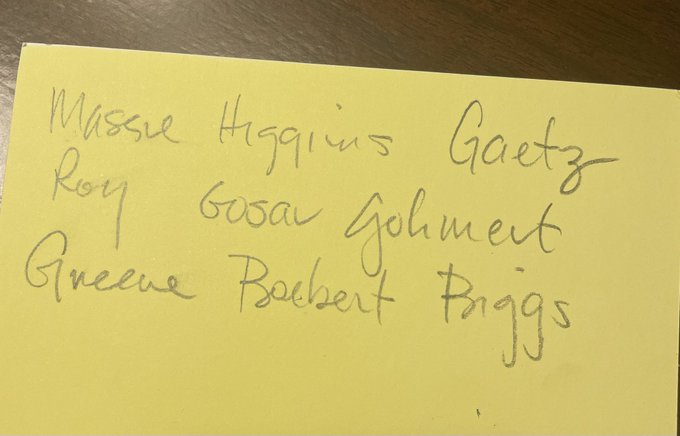 Massie Higgins Gaetz
Roy Gosar Gohmert
Greene Boebert Biggs